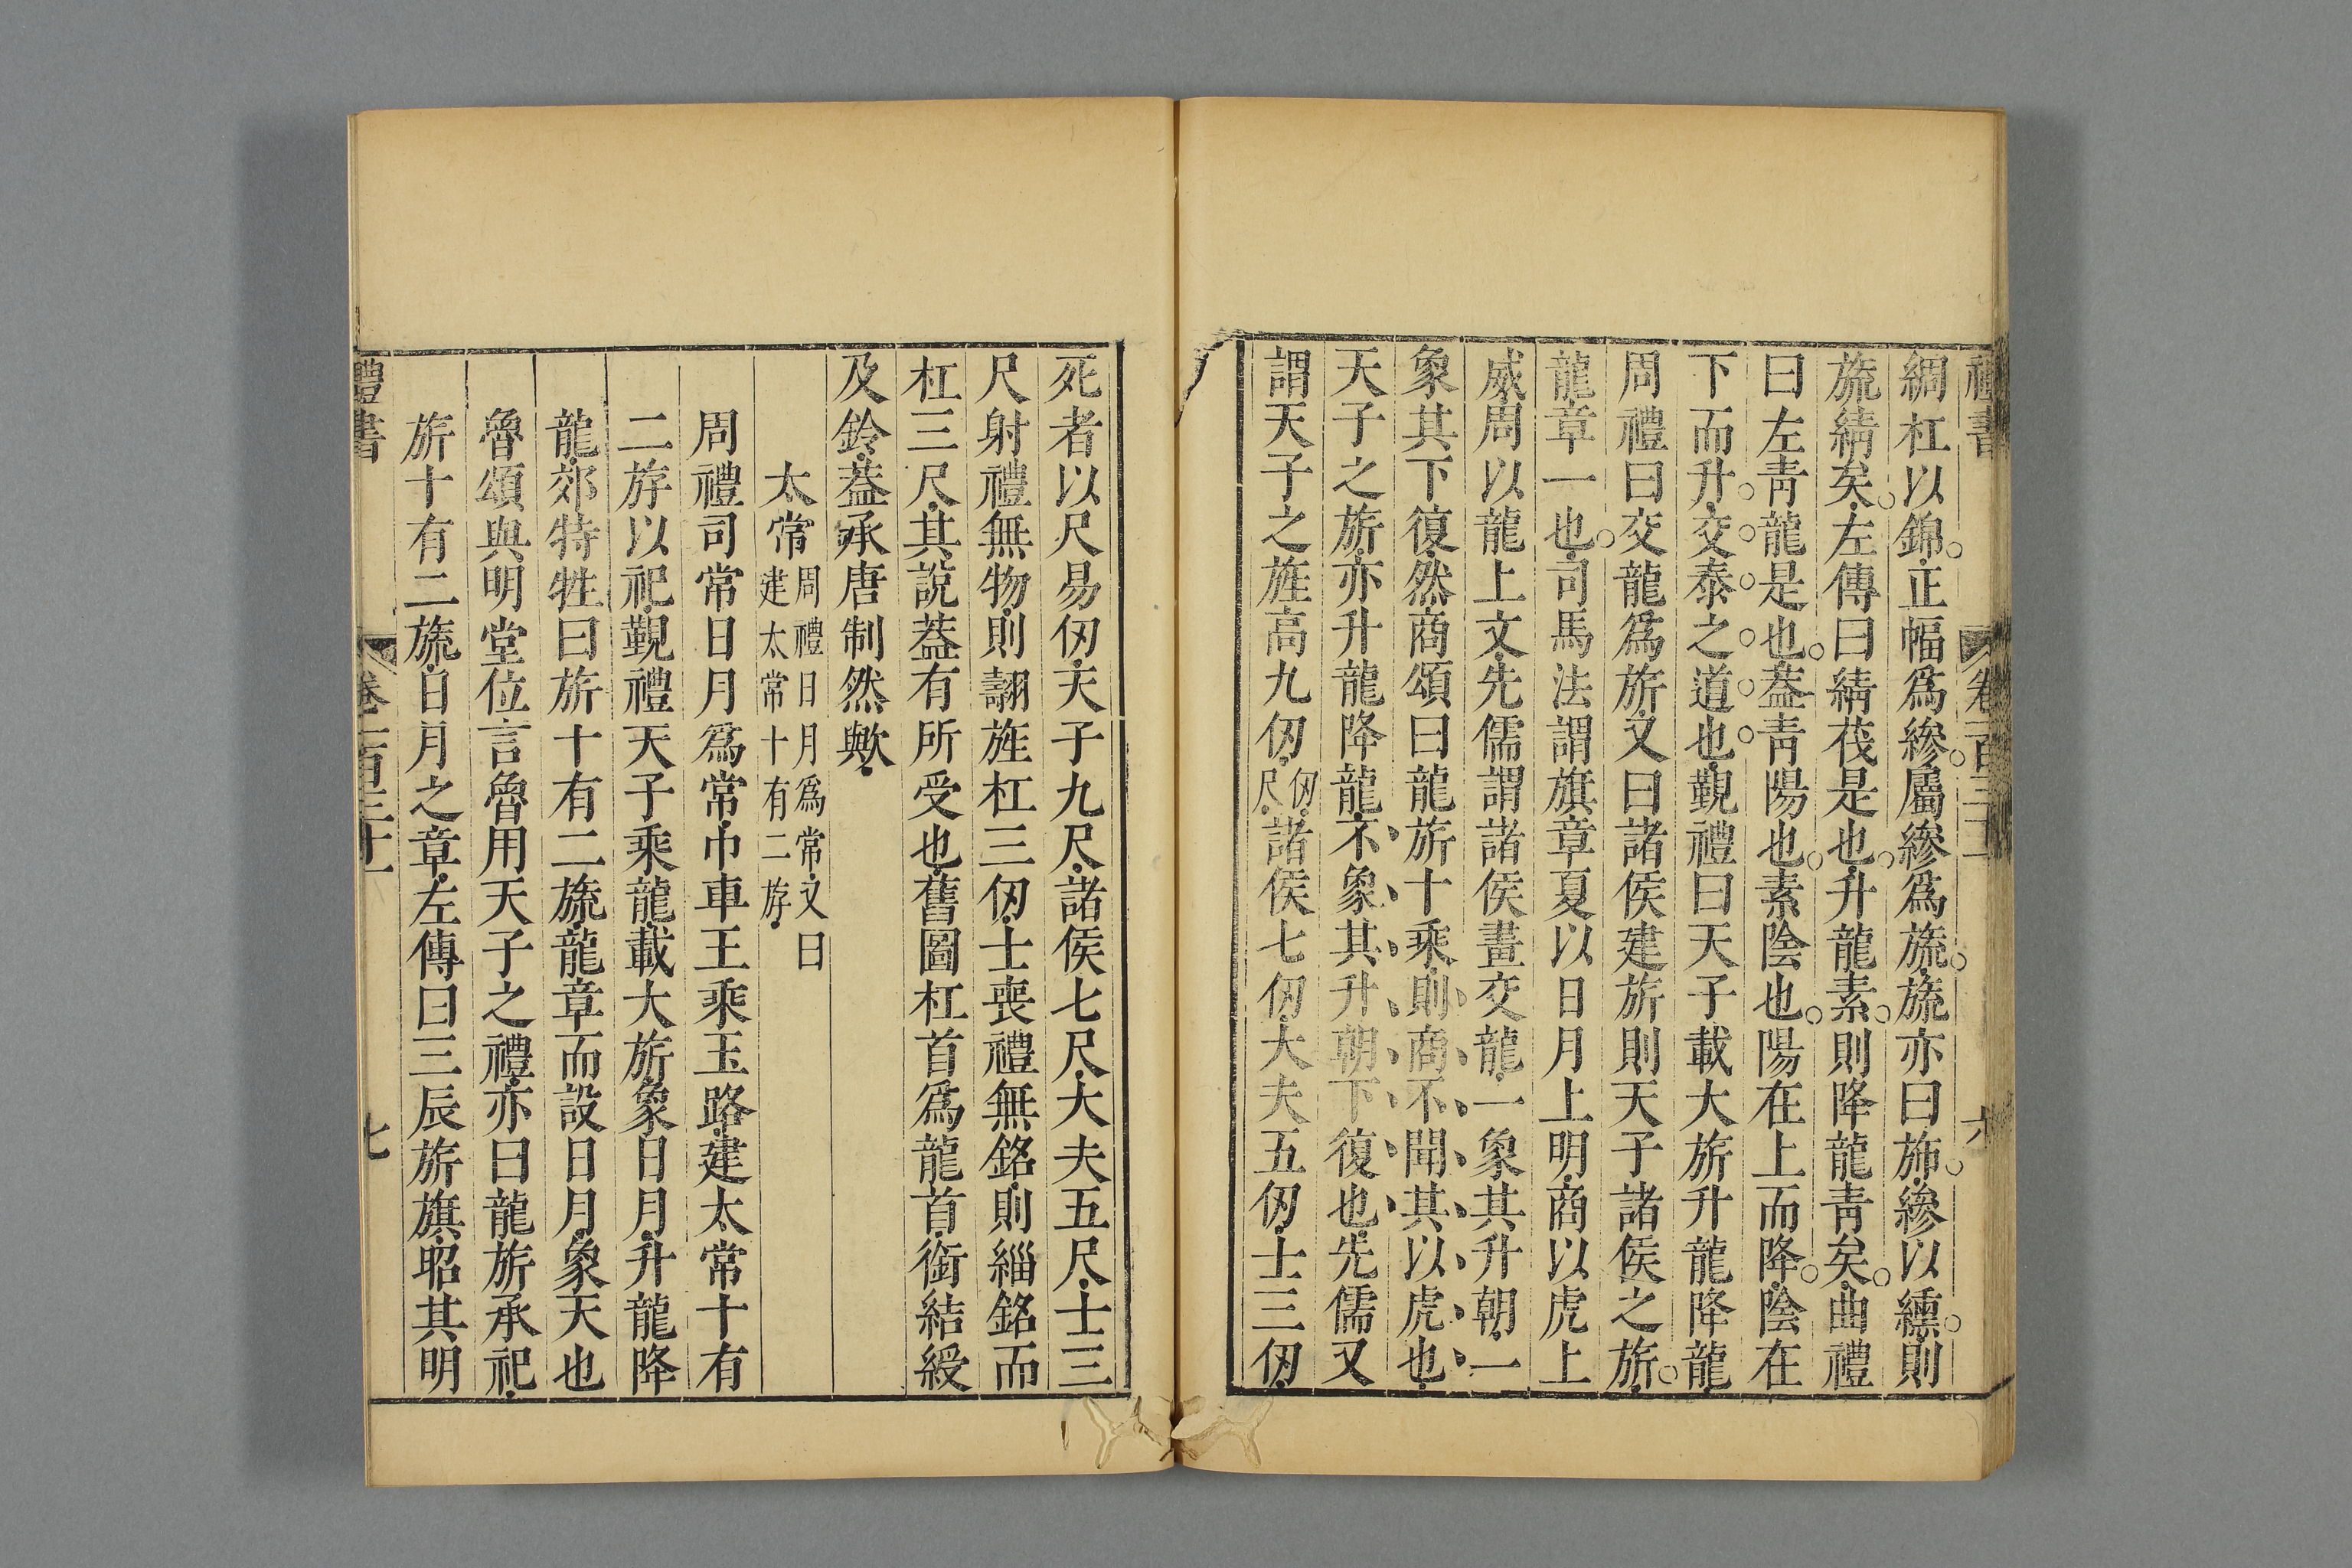 禮書 卷一百三十一 六
綢杠以錦正幅爲縿屬縿爲旒旒亦曰斾縿以纁則
旒綪矣左傳曰綪茷是也升龍素則降龍靑矣曲禮
曰左靑龍是也葢靑陽也素陰也陽在上而降陰在
下而升交泰之道也覲禮曰天子載大旂升龍降龍
周禮曰交龍爲旂又曰諸侯建旂則天子諸侯之旂
龍章一也司馬法謂旗章夏以日月上明商以虎上
威周以龍上文先儒謂諸侯畫交龍一象其升朝一
象其下復然商頌曰龍旂十乘則商不聞其以虎也
天子之旂亦升龍降龍不象其升朝下復也先儒又
謂天子之旌高九仞仞尺諸侯七仞大夫五仞士三仞
死者以尺易仞天子九尺諸侯七尺大夫五尺士三
尺射禮無物則翿旌杠三仞士喪禮無銘則緇銘而
杠三尺其說葢有所受也舊圖杠首爲龍首銜結綬
及鈴葢承唐制然歟
太常周禮日月爲常又曰建太常十有二斿
周禮司常日月爲常巾車王乘玉路建太常十有
二斿以祀覲禮天子乘龍載大旂象日月升龍降
龍郊特牲曰旂十有二旒龍章而設日月象天也
魯頌與明堂位言魯用天子之禮亦曰龍旂承祀
旂十有二旒日月之章左傳曰三辰旂旗昭其明
禮書 卷一百三十一 七